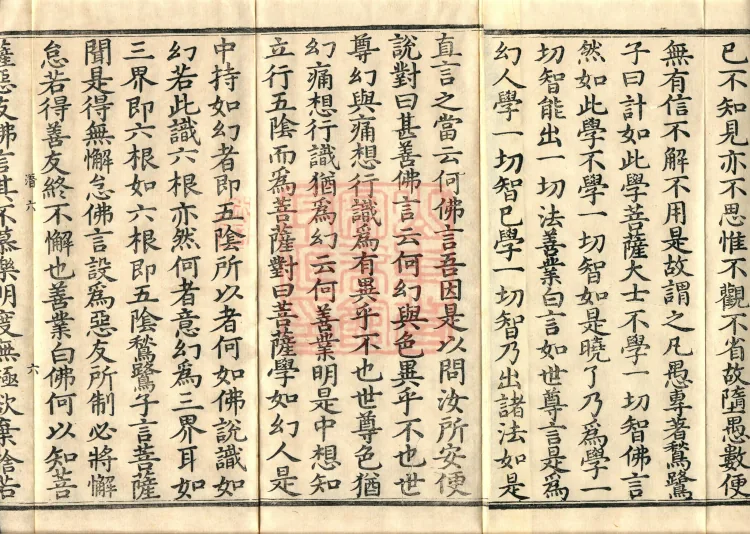 已不知見亦不思惟不觀不省故墮愚數便
無有信不解不用是故謂之凡愚專著鶖鷺
子曰計如此學菩薩大士不學一切智佛言
然如此學不學一切智如是曉了乃爲學一
切智能出一切法善業曰言如世尊言是爲
幻人學一切智已學一切智乃出諸法如是
直言之當云何佛言吾因是以問汝所安便
說對曰甚善佛言云何幻與色異乎不也世
尊幻與痛想行識爲有異乎不也世尊色猶
幻痛想行識猶爲幻云何善業明是中想知
立行五陰而爲菩薩對曰菩薩學如幻人是
中持如幻者即五陰所以者何如佛說識如
幻若此識六根亦然何者意幻爲三界耳如
三界即六根如六根即五陰鶖鷺子言菩薩
聞是得無懈怠佛言設爲惡友所制必將懈
怠若得善友終不懈也善業曰佛何以知菩
潛六 六
薩惡友佛言其不慕樂明度無極欲棄捨若